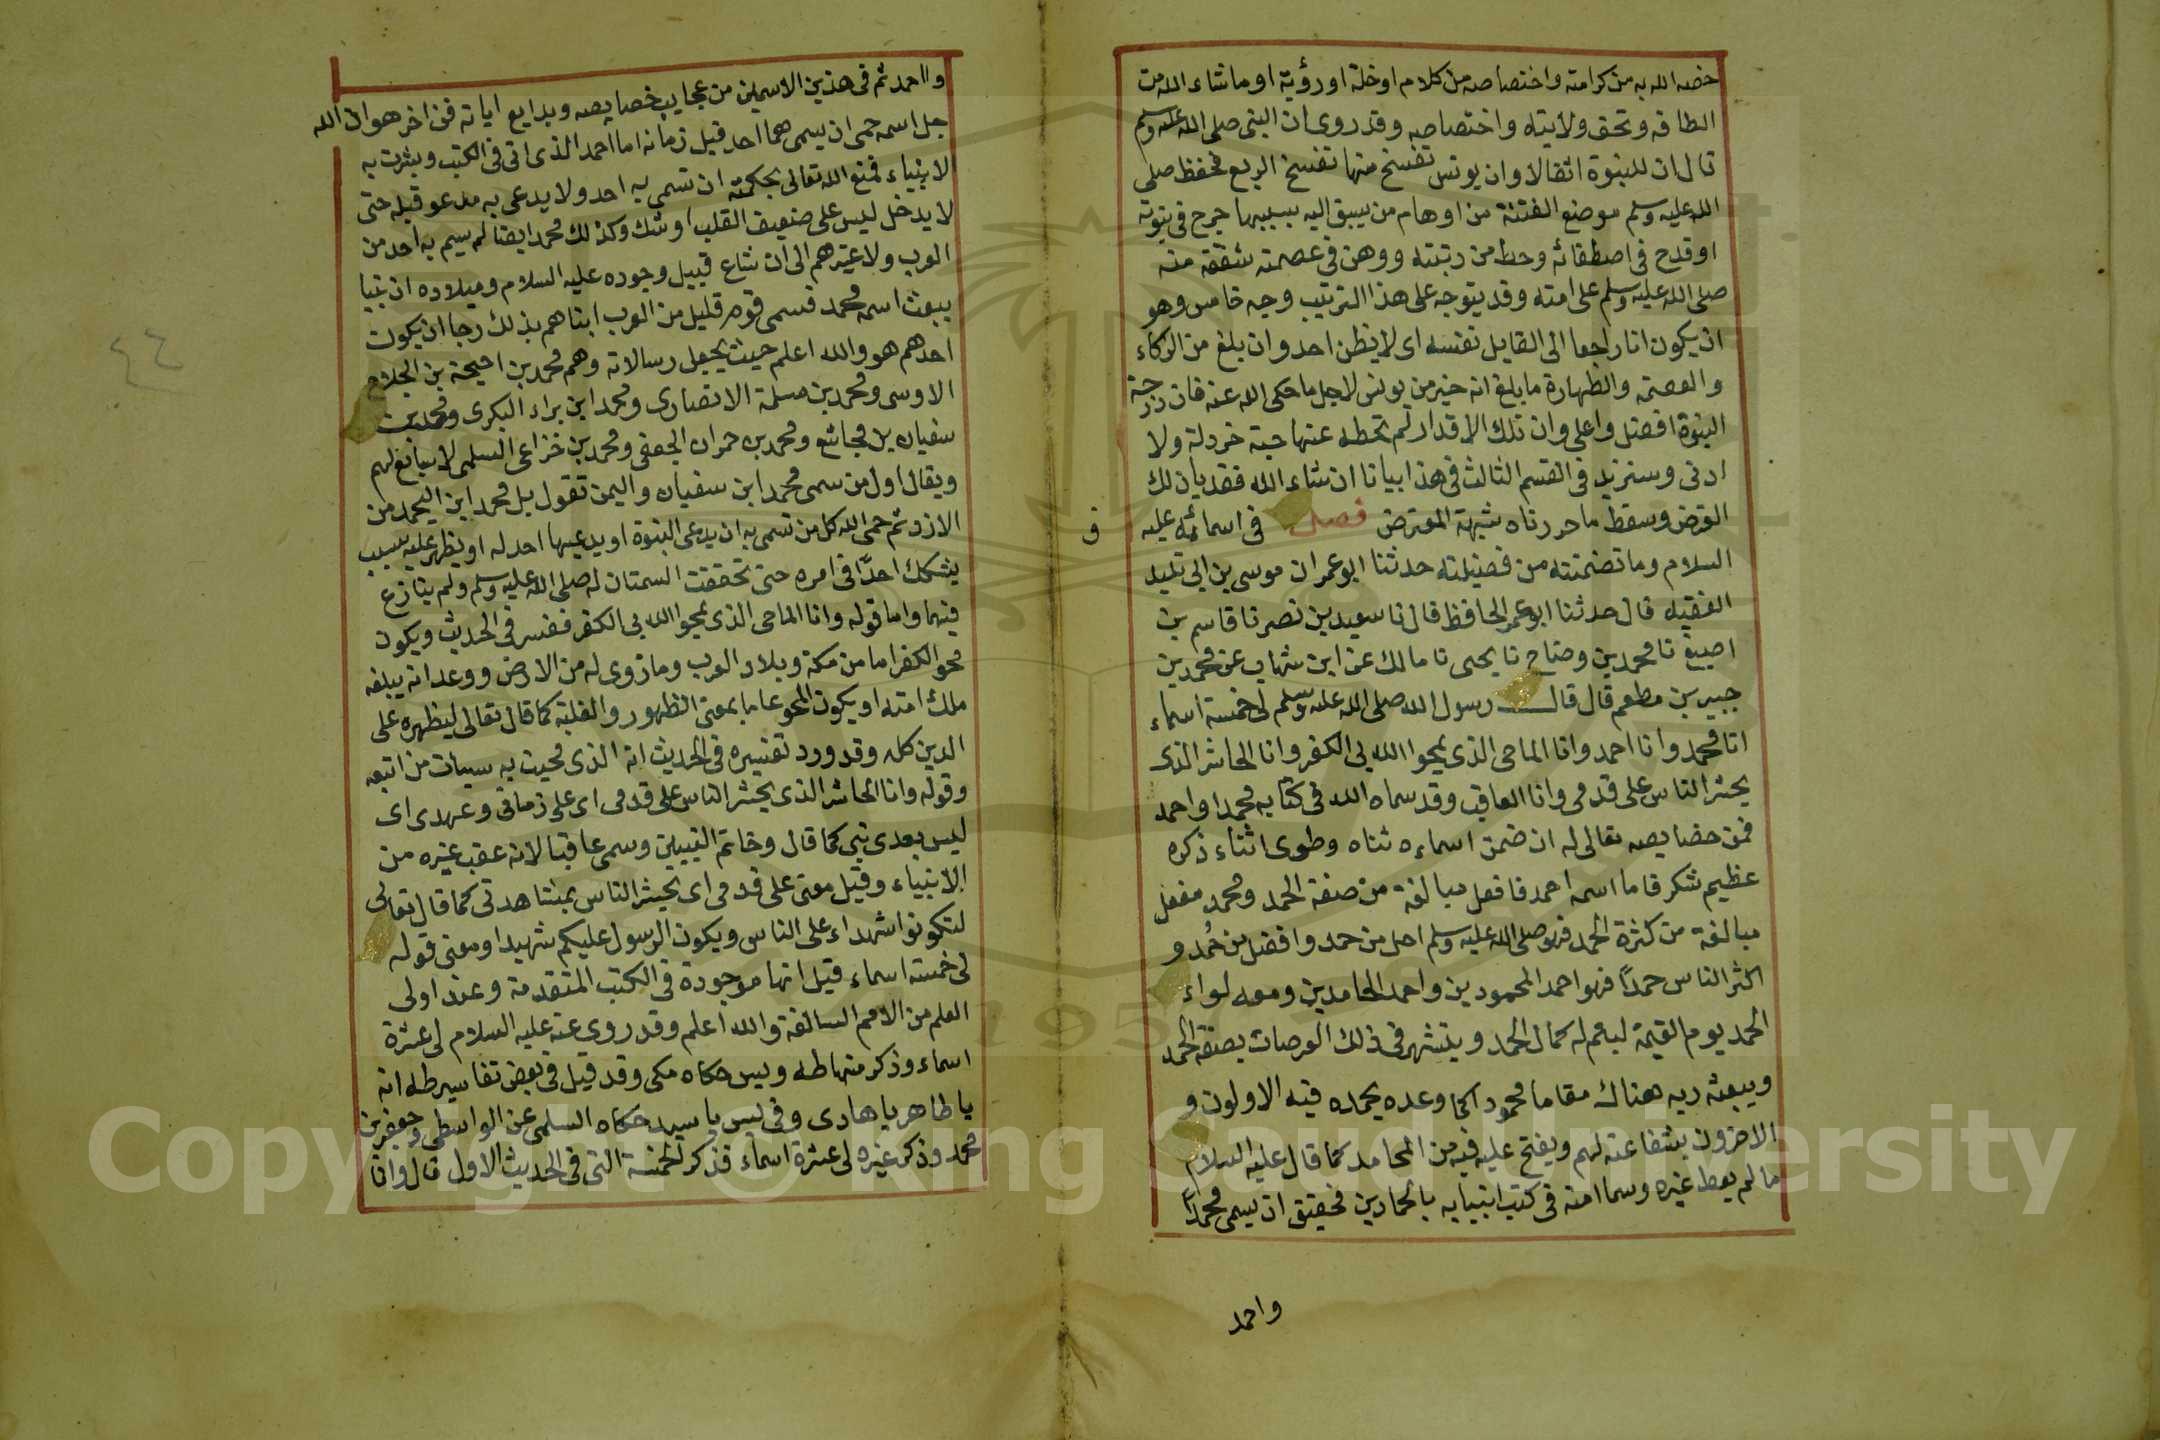 خصه الله به من كرامته واختصاصه من كلام او خلة او رؤية او ما شاء الله من
الطافه وتحف ولايته واختصاصه وقد روى ان النبى صلى الله عليه وسلم
قال ان للنبوة اثقالا وان يونس تفسخ منها تفسخ الربع فحفظ صلى
الله عليه وسلم موضع الفتنة من اوهام من يسبق اليه بسببها جرح فى نبوته
او قدح فى اصطفائه وحط من رتبته ووهن فى عصمته شفقة منه
صلى الله عليه وسلم على امته وقد يتوجه على هذا الترتيب وجه خامس وهو
ان يكون انا راجعا الى القايل نفسه اى لا يظن احد وان بلغ من الزكاء
والعصمة والطهارة ما يبلغ انه خير من يونس لاجل ما حكى الله عنه فان درجة
النبوة افضل واعلى وان تلك الاقدار لم تحطه عنها حبة خردلة ولا
ادنى وسنزيد فى القسم الثالث فى هذا بيانا ان شاء الله فقد بان لك
الغرض وسقط ما حررناه شبهة المعترض فصل فى اسمائه عليه
ف
السلام وما تضمنته من فضيلته حدثنا ابو عمران موسى بن ابى تليد
الفقيه قال حدثنا ابو عمر الحافظ قال نا سعيد بن نصر نا قاسم بن
اصبغ نا محمد بن وضاح نا يحيى نا مالك عن ابن شهاب عن محمد بن
جبير بن مطعم قال قال رسول الله صلى الله عليه وسلم لى خمسة اسماء
انا محمد وانا احمد وانا الماحى الذى يمحوا الله بى الكفر وانا الحاشر الذى
يحشر الناس على قدمى وانا العاقب وقد سماه الله فى كتابه محمدا واحمد
فمن خصايصه تعالى له ان ضمن اسماءه ثناه وطوى اثناء ذكره
عظيم شكر فاما اسمه احمد فافعل مبالغة من صفة الحمد ومحمد مفعل
مبالغة من كثرة الحمد فهو صلى الله عليه وسلم اجل من حمد وافضل من حُمد و
اكثر الناس حمدًا فهو احمد المحمودين واحمد الحامدين ومعه لواء
الحمد يوم القيمة ليتم له كمال الحمد ويتشهر فى ذلك العرصات بصفة الحمد
ويبعثه ربه هناك مقاما محمود اكما وعده يحمده فيه الاولون و
الاخرون بشفاعته لهم ويفتح عليه فيه من المحامد كما قال عليه السلام
ما لم يعط غيره وسما امته فى كتب انبيايه بالحمادين فحقيق ان يسمى محمدًا
واحمد
واحمد ثم فى هذين الاسمين من عجايب خصايصه وبدايع اياته فن اخر هو ان الله
جل اسمه حمى ان يسمى بهما احد قبل زمانه اما احمد الذى اتى فى الكتب وبشرت به
الانبياء فمنع الله تعالى بحكمته ان تسمى به احد ولا يدعى به مدعو قبله حتى
لا يدخل لبس على ضعيف القلب او شك وكذلك محمد ايضا لم يسم به احد من
العرب ولا غيرهم الى ان شاع قبيل وجوده عليه السلام وميلاده ان نبيا
يبعث اسمه محمد فسمى قوم قليل من العرب ابناهم بذلك رجا ان يكون
احدهم هو والله اعلم حيث يجعل رسالاته وهم محمد بن احيحة بن الجلاح
الاوسى ومحمد بن مسلمة الانصارى ومحمد ابن براء البكرى ومحمد بن
سفيان بن مجاشع ومحمد بن حمران الجعفى ومحمد بن خزاعى السلمى لا سابع لهم
ويقال اول من سمى محمد ابن سفيان واليمن تقول بل محمد ابن اليحمد من
الازد ثم حمى الله كل من تسمى به ان يدعى النبوة او يدعيها احد له او يظهر عليه بسبب
يشكك احدًا فى امره حتى تحققت السمتان له صلى الله عليه وسلم ولم ينازع
فيهما واما قوله وانا الماحى الذى يمحوا الله بى الكفر ففسر فى الحديث ويكون
محو الكفر اما من مكة وبلاد العرب وما زوى له من الارض ووعد انه يبلغه
ملك امته او يكون المحو عاما بمعنى الظهور والغلبة كما قال تعالى ليظهره على
الدين كله وقد ورد تفسيره فى الحديث انه الذى محيت به سيات من اتبعه
وقوله وانا الحاشر الذى يحشر الناس على قدمى اى على زمانى وعهدى اى
ليس بعدى نبى كما قال وخاتم النبيين وسمى عاقبا لانه عقب غيره من
الانبياء وقيل معنى على قدمى اى يحشر الناس بمشاهدتى كما قال تعالى
لتكونوا شهداء على الناس ويكون الرسول عليكم شهيدا ومعنى قوله
لى خمسة اسماء قيل انها موجودة فى الكتب المتقدمة وعند اولى
العلم من الامم السالفة والله اعلم وقد روى عنه عليه السلام لى عشرة
اسماء وذكر منها طه ويس حكاه مكى وقد قيل فى بعض تفاسير طه انه
يا طاهر يا هادى وفى يس يا سيد حكاه السلمى عن الواسطى وجعفر بن
محمد وذكر غيره لى عشرة اسماء فذكر الخمسة التى فى الحديث الاول قال وانا
٤٤
Copyright © King Saud University